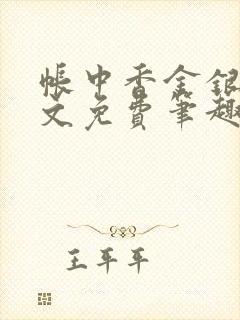 帐中香金银
文免费笔趣
王平平